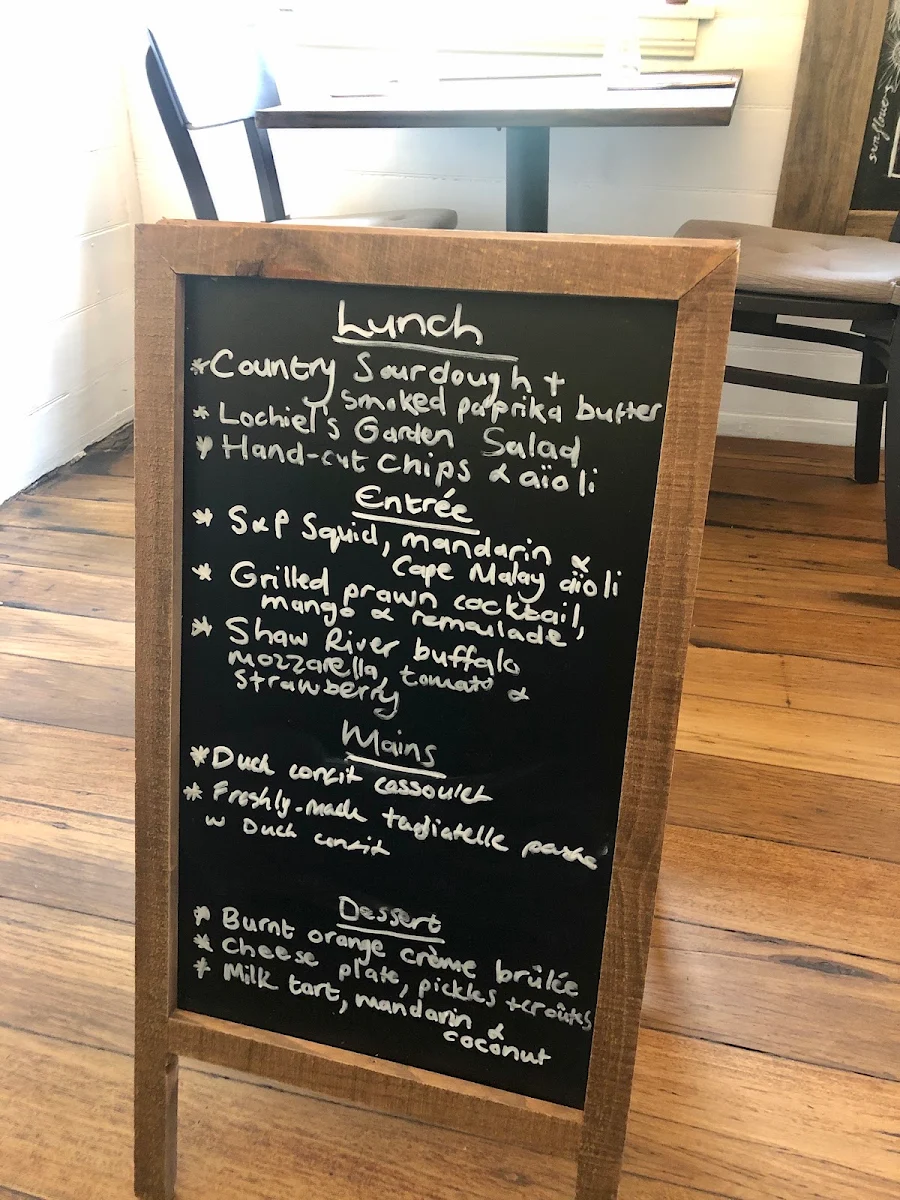 Lunch
* Country Sourdough +
smoked paprika butter
* Lochiel's Garden Salad
* Hand-cut chips & aïoli
Entrée
* S&P Squid, mandarin &
Cape Malay aïoli
* Grilled prawn cocktail,
mango & remoulade,
* Shaw River buffalo
mozzarella, tomato &
strawberry
Mains
* Duck confit cassoulet
* Freshly-made tagliatelle pasta
w Duck confit
Dessert
* Burnt orange crème brûlée
* Cheese plate, pickles + croûtes
* Milk tart, mandarin &
coconut
sunflower